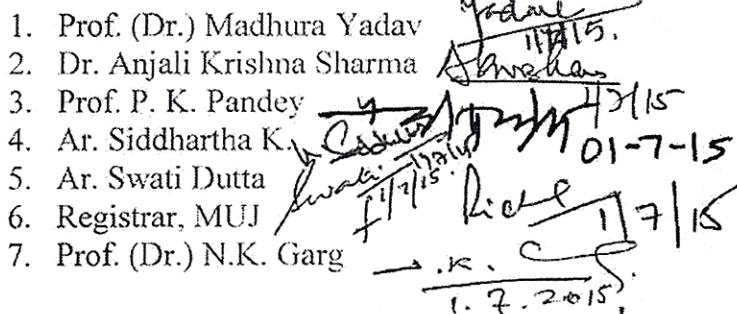 1. Prof. (Dr.) Madhura Yadav
1/7/15.
2. Dr. Anjali Krishna Sharma
3. Prof. P. K. Pandey
4. Ar. Siddhartha K.
01-7-15
5. Ar. Swati Dutta
Swati
1/7/15.
6. Registrar, MUJ
1/7/15
7. Prof. (Dr.) N.K. Garg
1.7.2015.